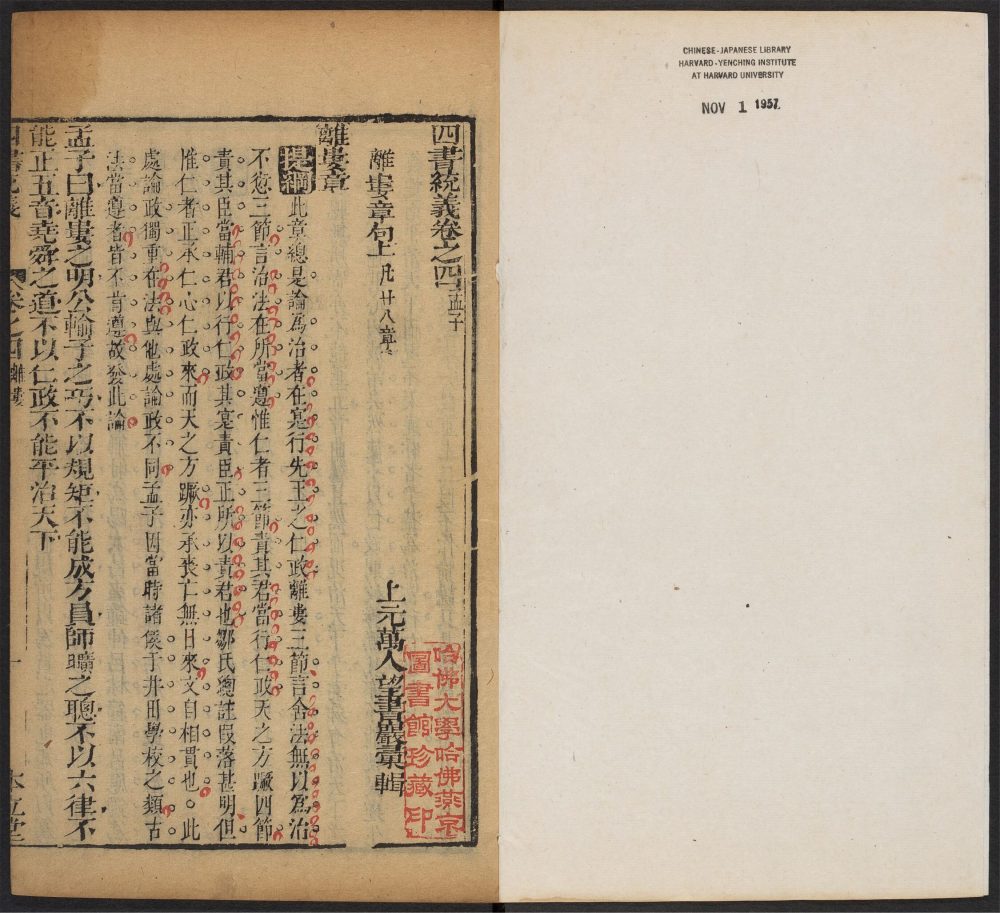 CHINESE-JAPANESE LIBRARY
HARVARD-YENCHING INSTITUTE
AT HARVARD UNIVERSITY
NOV 1 1957
四書統義卷之四 孟子
上元萬人望書巖彙輯
哈佛大學哈佛燕京
圖書館珍藏印
離婁章句上 凡廿八章
離婁章
提綱 此章總是論為治者在寔行先王之仁政離婁三節言舍法無以為治
不愆三節言治法在所當遵惟仁者三節責其君當行仁政天之方蹶四節
責其臣當輔君以行仁政其寔責臣正所以責君也鄒氏總註段落甚明但
惟仁者正承仁心仁政來而天之方蹶亦承喪亡無日來文自相貫也○此
處論政獨重在法與他處論政不同孟子因當時諸侯于井田學校之類古
法當遵者皆不肯遵故發此論
孟子曰離婁之明公輸子之巧不以規矩不能成方員師曠之聰不以六律不
能正五音堯舜之道不以仁政不能平治天下
卷之四 離婁 一